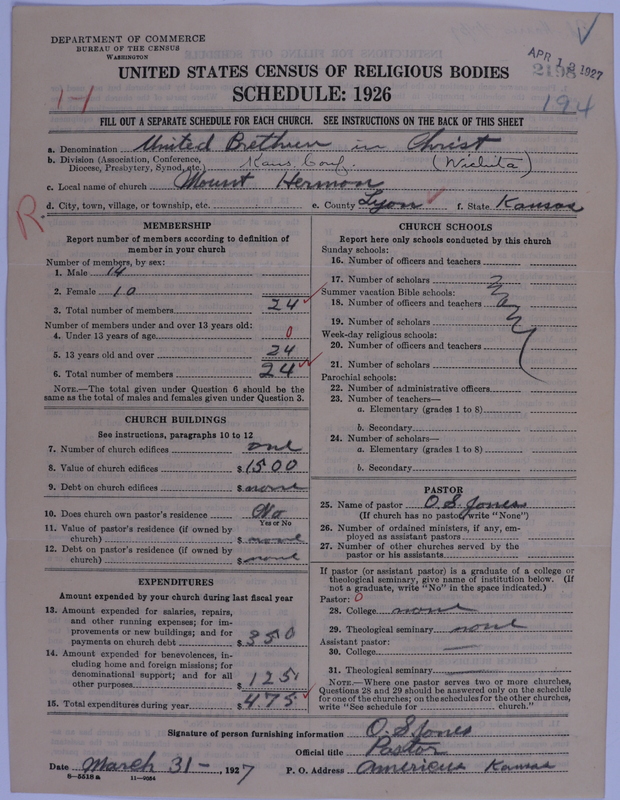 DEPARTMENT OF COMMERCE
BUREAU OF THE CENSUS
WASHINGTON
APR 1 2 1927
2198
UNITED STATES CENSUS OF RELIGIOUS BODIES
SCHEDULE: 1926
11
194
FILL OUT A SEPARATE SCHEDULE FOR EACH CHURCH. SEE INSTRUCTIONS ON THE BACK OF THIS SHEET
a. Denomination United Brethren in Christ
b. Division (Association, Conference, Diocese, Presbytery, Synod, etc.) Kans Conf. (Wichita)
c. Local name of church Mount Hermon
d. City, town, village, or township, etc. e. County Lyon f. State Kansas
R.
MEMBERSHIP
Report number of members according to definition of
member in your church
Number of members, by sex:
1. Male 14
2. Female 10
3. Total number of members 24
Number of members under and over 13 years old:
4. Under 13 years of age 0
5. 13 years old and over 24
6. Total number of members 24
NOTE.—The total given under Question 6 should be
same as the total of males and females given under Question 3.
CHURCH BUILDINGS
See instructions, paragraphs 10 to 12
7. Number of church edifices one
8. Value of church edifices $ 1500
9. Debt on church edifices $ none
10. Does church own pastor's residence No
Yes or No
11. Value of pastor's residence (if owned by
church) $ none
12. Debt on pastor's residence (if owned by
church) $ none
EXPENDITURES
Amount expended by your church during last fiscal year
13. Amount expended for salaries, repairs,
and other running expenses; for im-
provements or new buildings; and for
payments on church debt $ 350
14. Amount expended for benevolences, in-
cluding home and foreign missions; for
denominational support; and for all
other purposes $ 125
15. Total expenditures during year $ 475
CHURCH SCHOOLS
Report here only schools conducted by this church
Sunday schools:
16. Number of officers and teachers
17. Number of scholars
Summer vacation Bible schools:
18. Number of officers and teachers
19. Number of scholars
Week-day religious schools:
20. Number of officers and teachers
21. Number of scholars
Parochial schools:
22. Number of administrative officers
23. Number of teachers—
a. Elementary (grades 1 to 8)
b. Secondary
24. Number of scholars—
a. Elementary (grades 1 to 8)
b. Secondary
PASTOR
25. Name of pastor O. S. Jones
(If church has no pastor, write "None")
26. Number of ordained ministers, if any, em-
ployed as assistant pastors
27. Number of other churches served by the
pastor or his assistants
If pastor (or assistant pastor) is a graduate of a college or
theological seminary, give name of institution below. (If
not a graduate, write "No" in the space indicated.)
Pastor: 0
28. College none
29. Theological seminary none
Assistant pastor:
30. College —
31. Theological seminary —
NOTE.—Where one pastor serves two or more churches,
Questions 28 and 29 should be answered only on the schedule
for one of the churches; on the schedules for the other churches,
write "See schedule for church."
Signature of person furnishing information O. S. Jones
Official title Pastor
Date March 31-, 1927 P. O. Address Americus Kansas
6—5518 a 11—9084